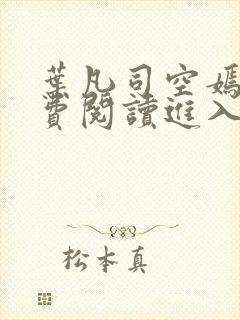 葉凡司空嫣
費閱讀進入
松本真